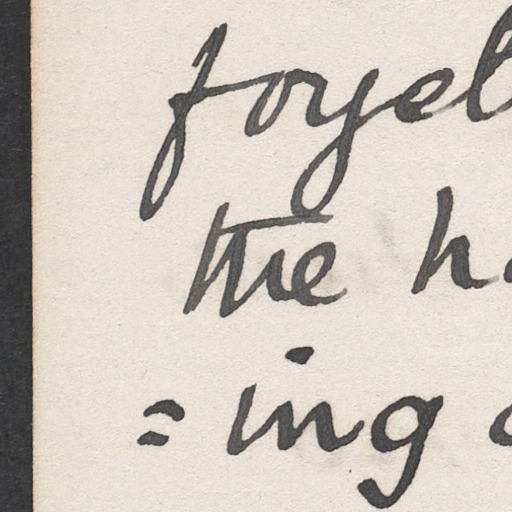 forget
the h
=ing